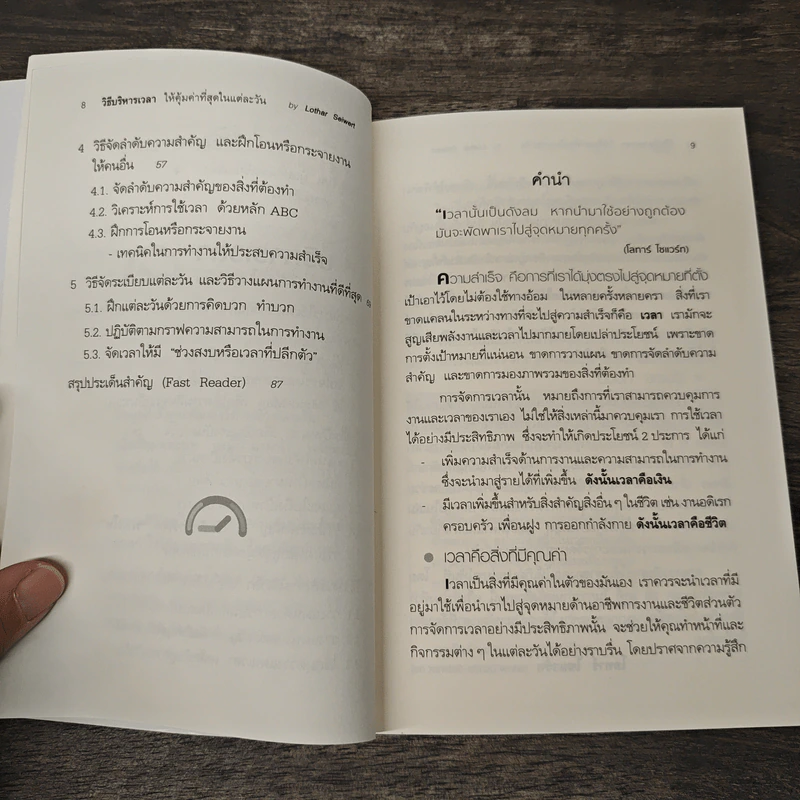 8 วิธีบริหารเวลา ให้คุ้มค่าที่สุดในแต่ละวัน by Lothar Seiwert
4 วิธีจัดลำดับความสำคัญ และฝึกโอนหรือกระจายงาน
ให้คนอื่น 57
4.1. จัดลำดับความสำคัญของสิ่งที่ต้องทำ
4.2. วิเคราะห์การใช้เวลา ด้วยหลัก ABC
4.3. ฝึกการโอนหรือกระจายงาน
- เทคนิคในการทำงานให้ประสบความสำเร็จ
5 วิธีจัดระเบียบแต่ละวัน และวิธีวางแผนการทำงานที่ดีที่สุด
5.1. ฝึกแต่ละวันด้วยการคิดบวก ทำบวก
5.2. ปฏิบัติตามกราฟความสามารถในการทำงาน
5.3. จัดเวลาให้มี "ช่วงสงบหรือเวลาที่ปลีกตัว"
สรุปประเด็นสำคัญ (Fast Reader) 87
9
คำนำ
"เวลานั้นเป็นดังลม หากนำมาใช้อย่างถูกต้อง
มันจะพัดพาเราไปสู่จุดหมายทุกครั้ง"
(โลทาร์ ไซแวร์ท)
ความสำเร็จ คือการที่เราได้มุ่งตรงไปสู่จุดหมายที่ตั้ง
เป้าเอาไว้โดยไม่ต้องใช้ทางอ้อม ในหลายครั้งหลายครา สิ่งที่เรา
ขาดแคลนในระหว่างทางที่จะไปสู่ความสำเร็จก็คือ เวลา เรามักจะ
สูญเสียพลังงานและเวลาไปมากมายโดยเปล่าประโยชน์ เพราะขาด
การตั้งเป้าหมายที่แน่นอน ขาดการวางแผน ขาดการจัดลำดับความ
สำคัญ และขาดการมองภาพรวมของสิ่งที่ต้องทำ
การจัดการเวลานั้น หมายถึงการที่เราสามารถควบคุมการ
งานและเวลาของเราเอง ไม่ใช่ให้สิ่งเหล่านี้มาควบคุมเรา การใช้เวลา
ได้อย่างมีประสิทธิภาพ ซึ่งจะทำให้เกิดประโยชน์ 2 ประการ ได้แก่
- เพิ่มความสำเร็จด้านการงานและความสามารถในการทำงาน
ซึ่งจะนำมาสู่รายได้ที่เพิ่มขึ้น ดังนั้นเวลาคือเงิน
- มีเวลาเพิ่มขึ้นสำหรับสิ่งสำคัญสิ่งอื่น ๆ ในชีวิต เช่น งานอดิเรก
ครอบครัว เพื่อนฝูง การออกกำลังกาย ดังนั้นเวลาคือชีวิต
● เวลาคือสิ่งที่มีคุณค่า
เวลาเป็นสิ่งที่มีคุณค่าในตัวของมันเอง เราควรจะนำเวลาที่มี
อยู่มาใช้เพื่อนำเราไปสู่จุดหมายด้านอาชีพการงานและชีวิตส่วนตัว
การจัดการเวลาอย่างมีประสิทธิภาพนั้น จะช่วยให้คุณทำหน้าที่และ
กิจกรรมต่าง ๆ ในแต่ละวันได้อย่างราบรื่น โดยปราศจากความรู้สึก